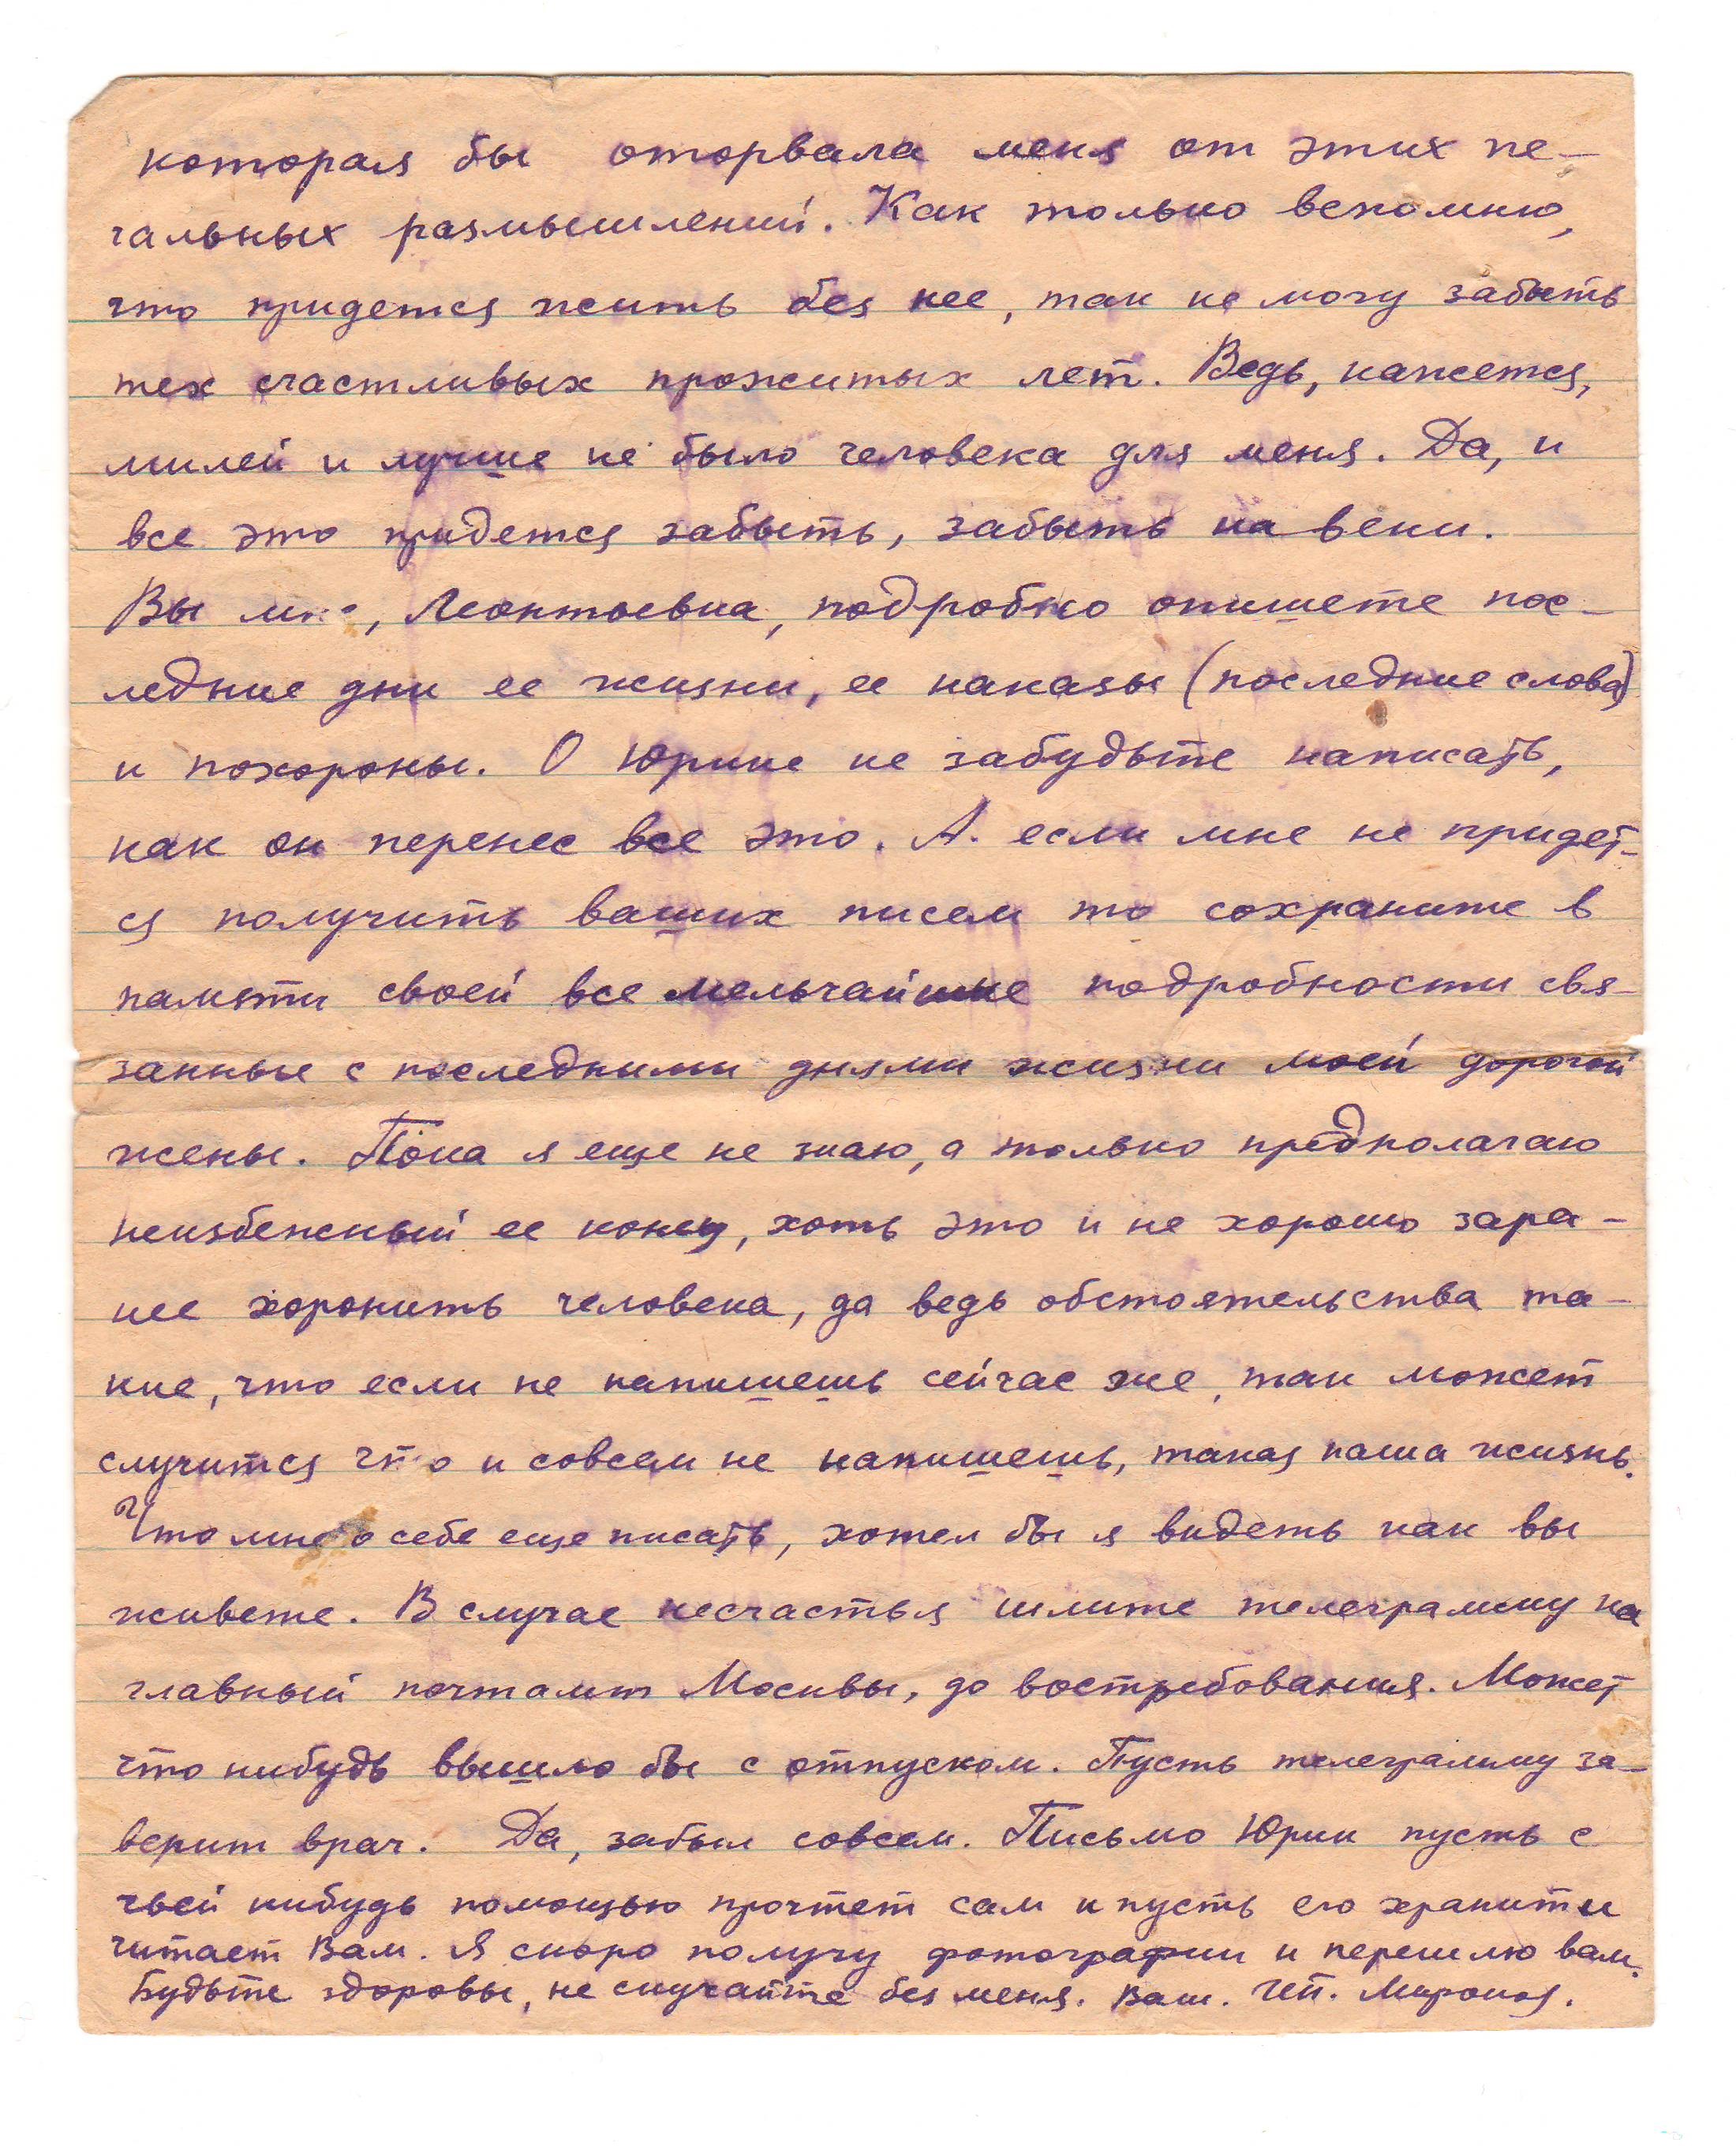 которая бы оторвала меня от этих пе-
чальных размышлений. Как только вспомню,
что придется жить без нее, так не могу забыть
тех счастливых прожитых лет. Ведь, кажется,
милей и лучше не было человека для меня. Да, и
все это придется забыть, забыть на веки.
Вы мне, Леонтьевна, подробно опишете пос-
ледние дни ее жизни, ее наказы (последние слова)
и похороны. О Юрике не забудьте написать,
как он перенес все это. А. если мне не придет-
ся получить ваших писем то сохраните в
памяти своей все мельчайшие подробности свя-
занные с последними днями жизни моей дорогой
жены. Пока я еще не знаю, а только предполагаю
неизбежный ее конец, хоть это и не хорошо зара-
нее хоронить человека, да ведь обстоятельства та-
кие, что если не напишешь сейчас же, так может
случится что и совсем не напишешь, такая наша жизнь.
Что мне о себе еще писать, хотел бы я видеть как вы
живете. В случае несчастья шлите телеграмму на
главный почтамт Москвы, до востребования. Может
что нибудь вышло бы с отпуском. Пусть телеграмму за-
верит врач. Да, забыл совсем. Письмо Юрик пусть с
чьей нибудь помощью прочтет сам и пусть его хранит и
читает Вам. Я скоро получу фотографии и перешлю вам.
Будьте здоровы, не скучайте без меня. Ваш.